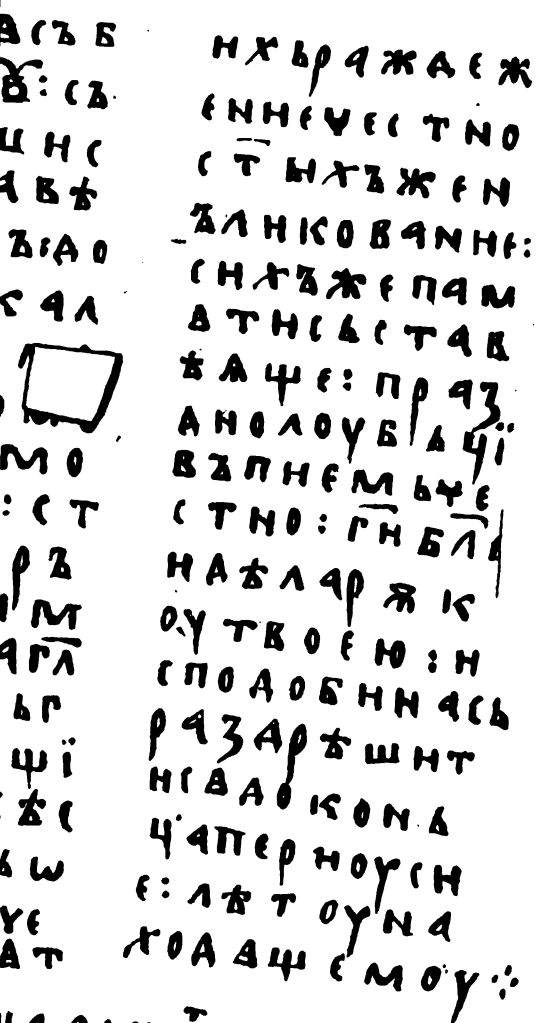 асъб
в:съ
шис
авѣ
ъ:до
кал
мо
:ст
ръ
м
агл҃
ьг
щї
ѣс
ьѡ
ѵє
ат
ихьраждєж
єнниѵєстно
ст҃ыхъжєн
ъликованиє:
сихъжєпам
ѧтисьстав
ѣѧщє:праз
днолоубьцї
въпиємьчє
стно:г҃иб҃лѧ
идѣларѫк
оутвоєю:и
сподобиинась
раздрѣшит
исѧдоконь
цаперноуси
є:лѣтоуна
ходѧщємоу⁘